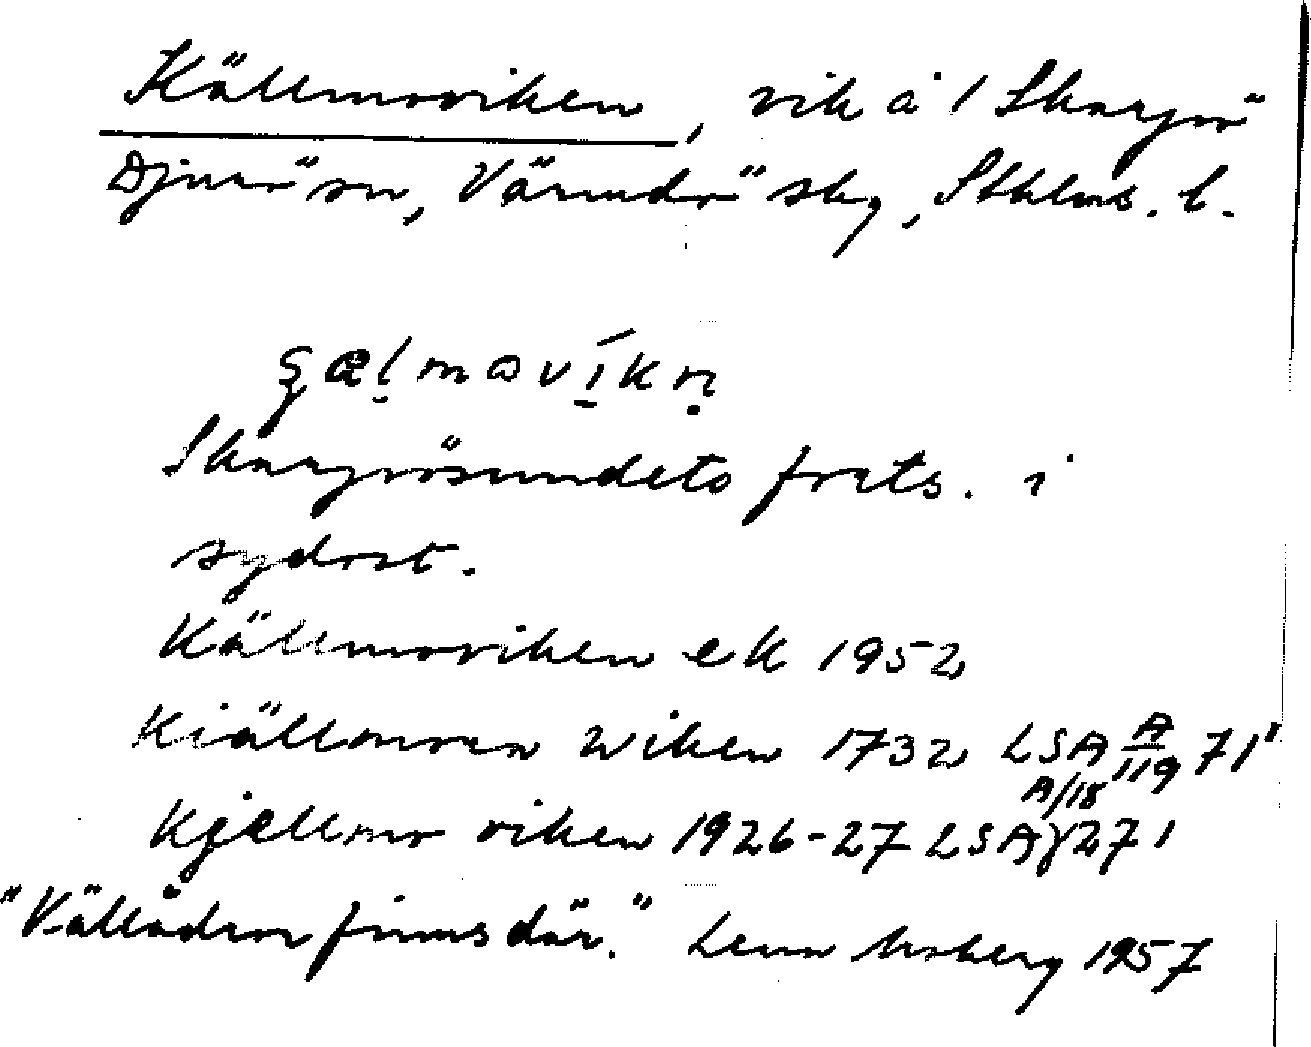 Källmoviken, vik å 1 Skarpö
Djurö sn, Värmdö skg, Sthlms. l.
çælmovíkn̥
Skarpösundets forts. i
sydost.
Källmoviken ek 1952
Kiällmoran wiken 1732 LSA A/119 71'
Kjellmo viken 1926-27 LSA A/18 271
"Källådror finns där." Lena Moberg 1957